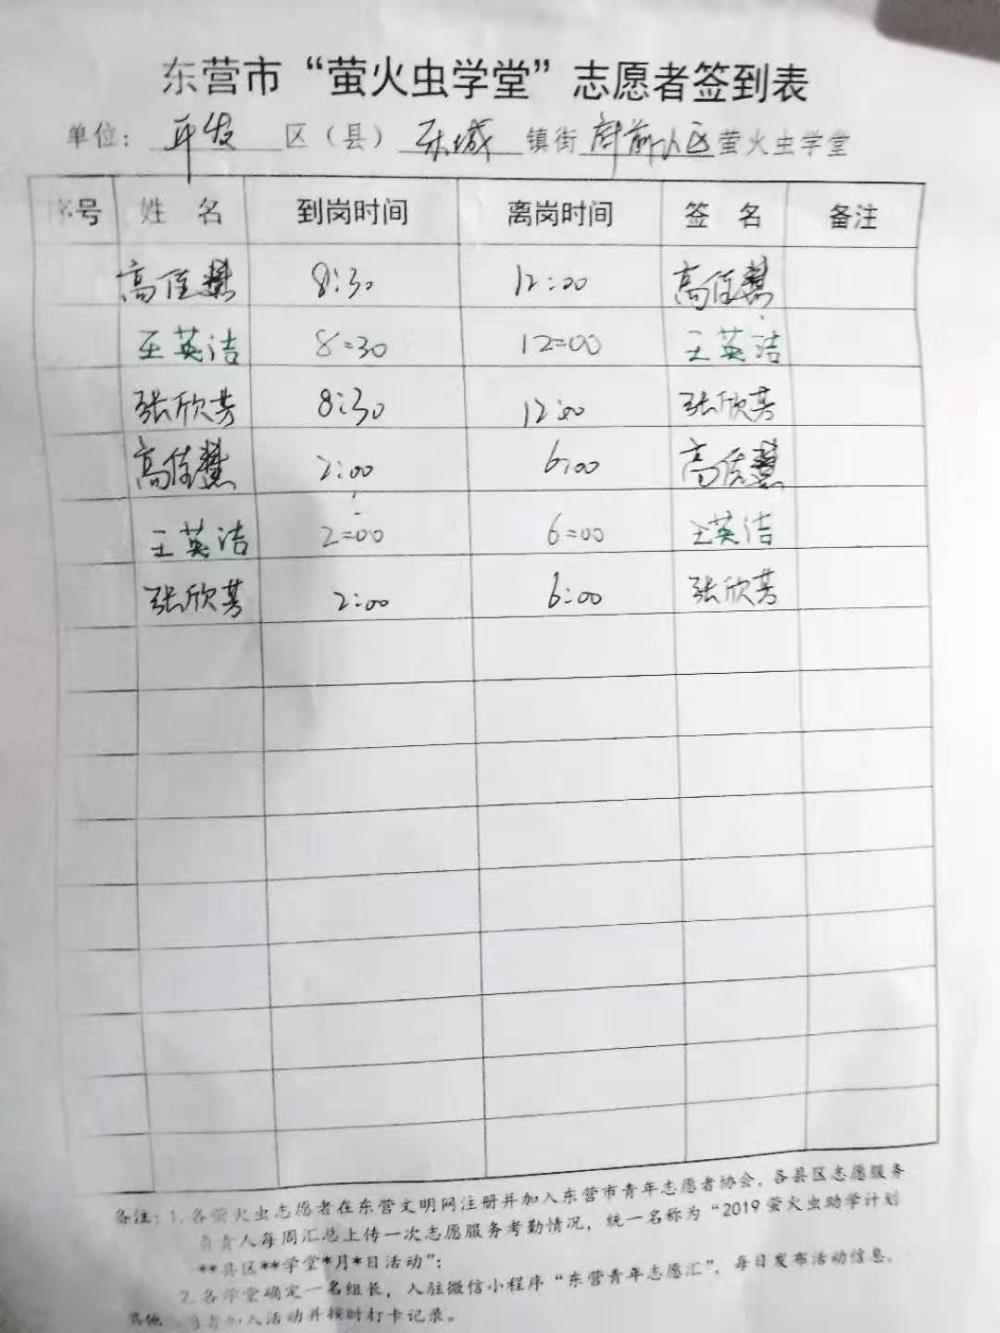 东营市“萤火虫学堂”志愿者签到表
单位：开发区（县）东城镇街府前小区萤火虫学堂
序号 姓 名 到岗时间 离岗时间 签 名 备注
高佳慧 8:30 12:00 高佳慧
王英洁 8:30 12:00 王英洁
张欣芳 8:30 12:00 张欣芳
高佳慧 2:00 6:00 高佳慧
王英洁 2:00 6:00 王英洁
张欣芳 2:00 6:00 张欣芳
备注：1.各萤火虫志愿者在东营文明网注册并加入东营市青年志愿者协会，各县区志愿服务
负责人每周汇总上传一次志愿服务考勤情况，统一名称为“2019萤火虫助学计划
**县区**学堂*月*日活动”；
2.各学堂确定一名组长，入驻微信小程序“东营青年志愿汇”，每日发布活动信息，
其他 者加入活动并按时打卡记录。